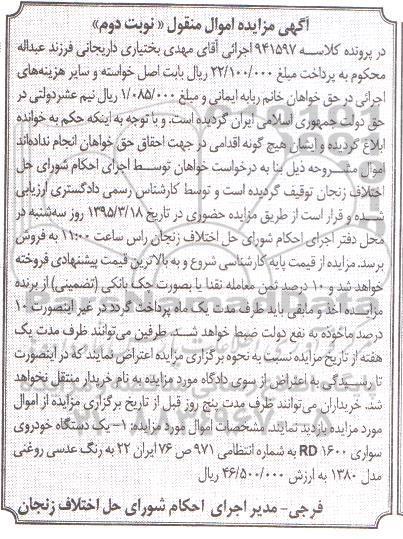 آگهی مزایده اموال منقول « نوبت دوم»
در پرونده کلاسه ۹۴۱۵۹۷ اجرائی آقای مهدی بختیاری داریجانی فرزند عبداله
محکوم به پرداخت مبلغ ۲۲/۱۰۰/۰۰۰ ریال بابت اصل خواسته و سایر هزینه‌های
اجرائی در حق خواهان خانم ربابه ایمانی و مبلغ ۱/۰۸۵/۰۰۰ ریال نیم عشردولتی در
حق دولت جمهوری اسلامی ایران گردیده است. و با توجه به اینکه حکم به خوانده
ابلاغ گردیده و ایشان هیچ گونه اقدامی در جهت احقاق حق خواهان انجام نداده‌اند
اموال مشروحه ذیل بنا به درخواست خواهان توسط اجرای احکام شورای حل
اختلاف زنجان توقیف گردیده است و توسط کارشناس رسمی دادگستری ارزیابی
شده و قرار است از طریق مزایده حضوری در تاریخ ۱۳۹۵/۳/۱۸ روز سه‌شنبه در
محل دفتر اجرای احکام شورای حل اختلاف زنجان راس ساعت ۱۱:۰۰ به فروش
برسد. مزایده از قیمت پایه کارشناسی شروع و به بالاترین قیمت پیشنهادی فروخته
خواهد شد و ۱۰ درصد ثمن معامله نقدا یا بصورت چک بانکی (تضمینی) از برنده
مزایده اخذ و مابقی باید ظرف مدت یک ماه پرداخت گردد در غیر اینصورت ۱۰
درصد ماخوذه به نفع دولت ضبط خواهد شد. طرفین می‌توانند ظرف مدت یک
هفته از تاریخ مزایده نسبت به نحوه برگزاری مزایده اعتراض نمایند که در اینصورت
تا رسیدگی به اعتراض از سوی دادگاه مورد مزایده به نام خریدار منتقل نخواهد
شد. خریداران می‌توانند ظرف مدت پنج روز قبل از تاریخ برگزاری مزایده از اموال
مورد مزایده بازدید نمایند. مشخصات اموال مورد مزایده: ۱- یک دستگاه خودروی
سواری RD ۱۶۰۰ به شماره انتظامی ۹۷۱ ص ۷۶ ایران ۲۲ به رنگ عدسی روغنی
مدل ۱۳۸۰ به ارزش ۴۶/۵۰۰/۰۰۰ ریال
فرجی- مدیر اجرای احکام شورای حل اختلاف زنجان
ParsNamadData